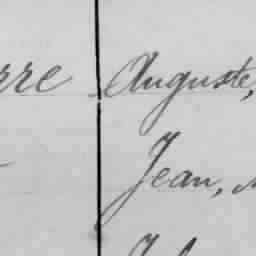 rre Auguste,
Jean,